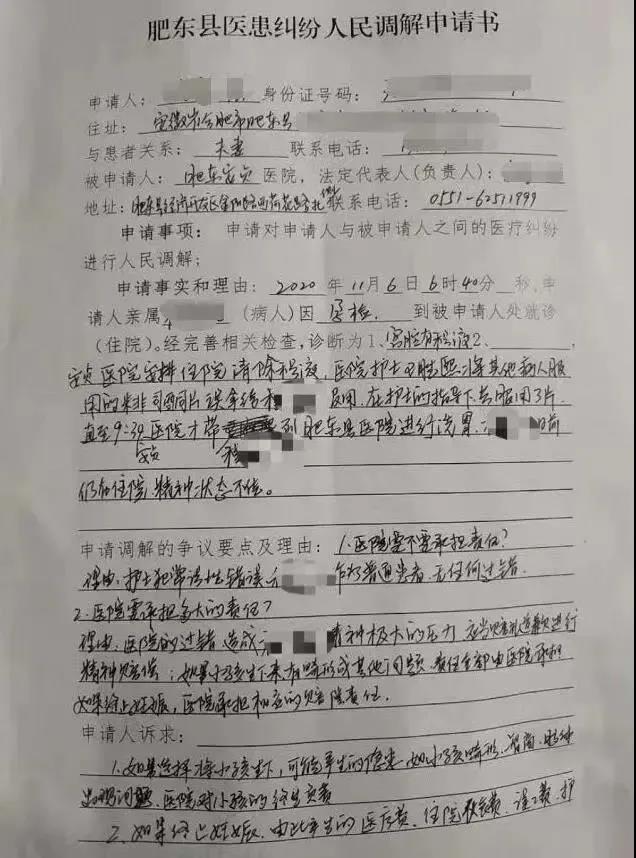 肥东县医患纠纷人民调解申请书
申请人： 身份证号码：
住址：安徽省合肥市肥东县
与患者关系：夫妻 联系电话：
被申请人：肥东安贞医院，法定代表人(负责人)：
地址：肥东县经济开发区金阳路西荷花路 联系电话：0551-62511999
申请事项：申请对申请人与被申请人之间的医疗纠纷
进行人民调解；
申请事实和理由：2020年11月6日6时40分 秒，申
请人亲属 （病人）因 孕检 到被申请人处就诊
（住院）。经完善相关检查，诊断为1、宫腔有积液2、
安贞医院安排住院清除积液，医院护士 将其他病人服
用的米非司酮片误拿给 服用，在护士的指导下共服用3片
直至9:30医院才带 到肥东县医院进行洗胃， 目前
安贞
仍在住院，精神状态不佳。
申请调解的争议要点及理由：1.医院需不需承担责任？
理由：护士犯常识性错误 作为普通患者，无任何过错。
2.医院需承担多大的责任？
理由：医院的过错造成 精神极大的压力，应当 进行
精神赔偿；如果小孩生下来有畸形或其他问题，责任全部由医院承担
如果终止妊娠，医院承担相应的赔偿责任。
申请人诉求：
1.如果选择将小孩生下，可能产生的隐患，如小孩畸形、智商、精神
出现问题，医院对小孩的终生负责
2.如果终止妊娠，由此产生的医疗费、住院 费、误工费、护